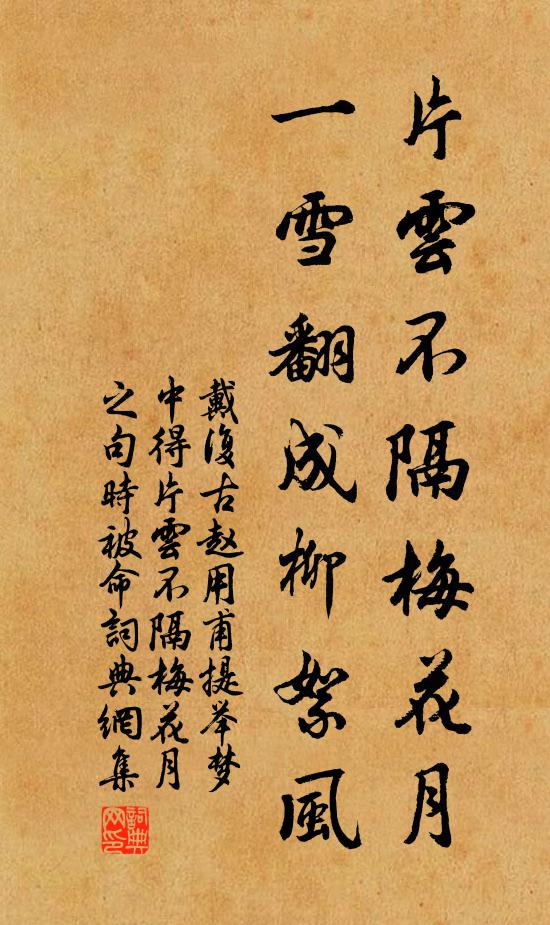 片雲不隔梅花月
一雪翻成柳絮風
戴復古赵用甫提举梦
中得片雲不隔梅花月
之句時被命詞典網集
詞典
网印